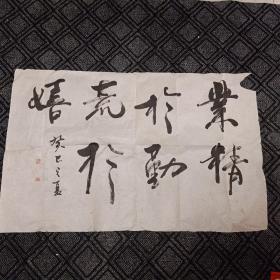 業精
於勤
荒於
嬉
癸巳之夏